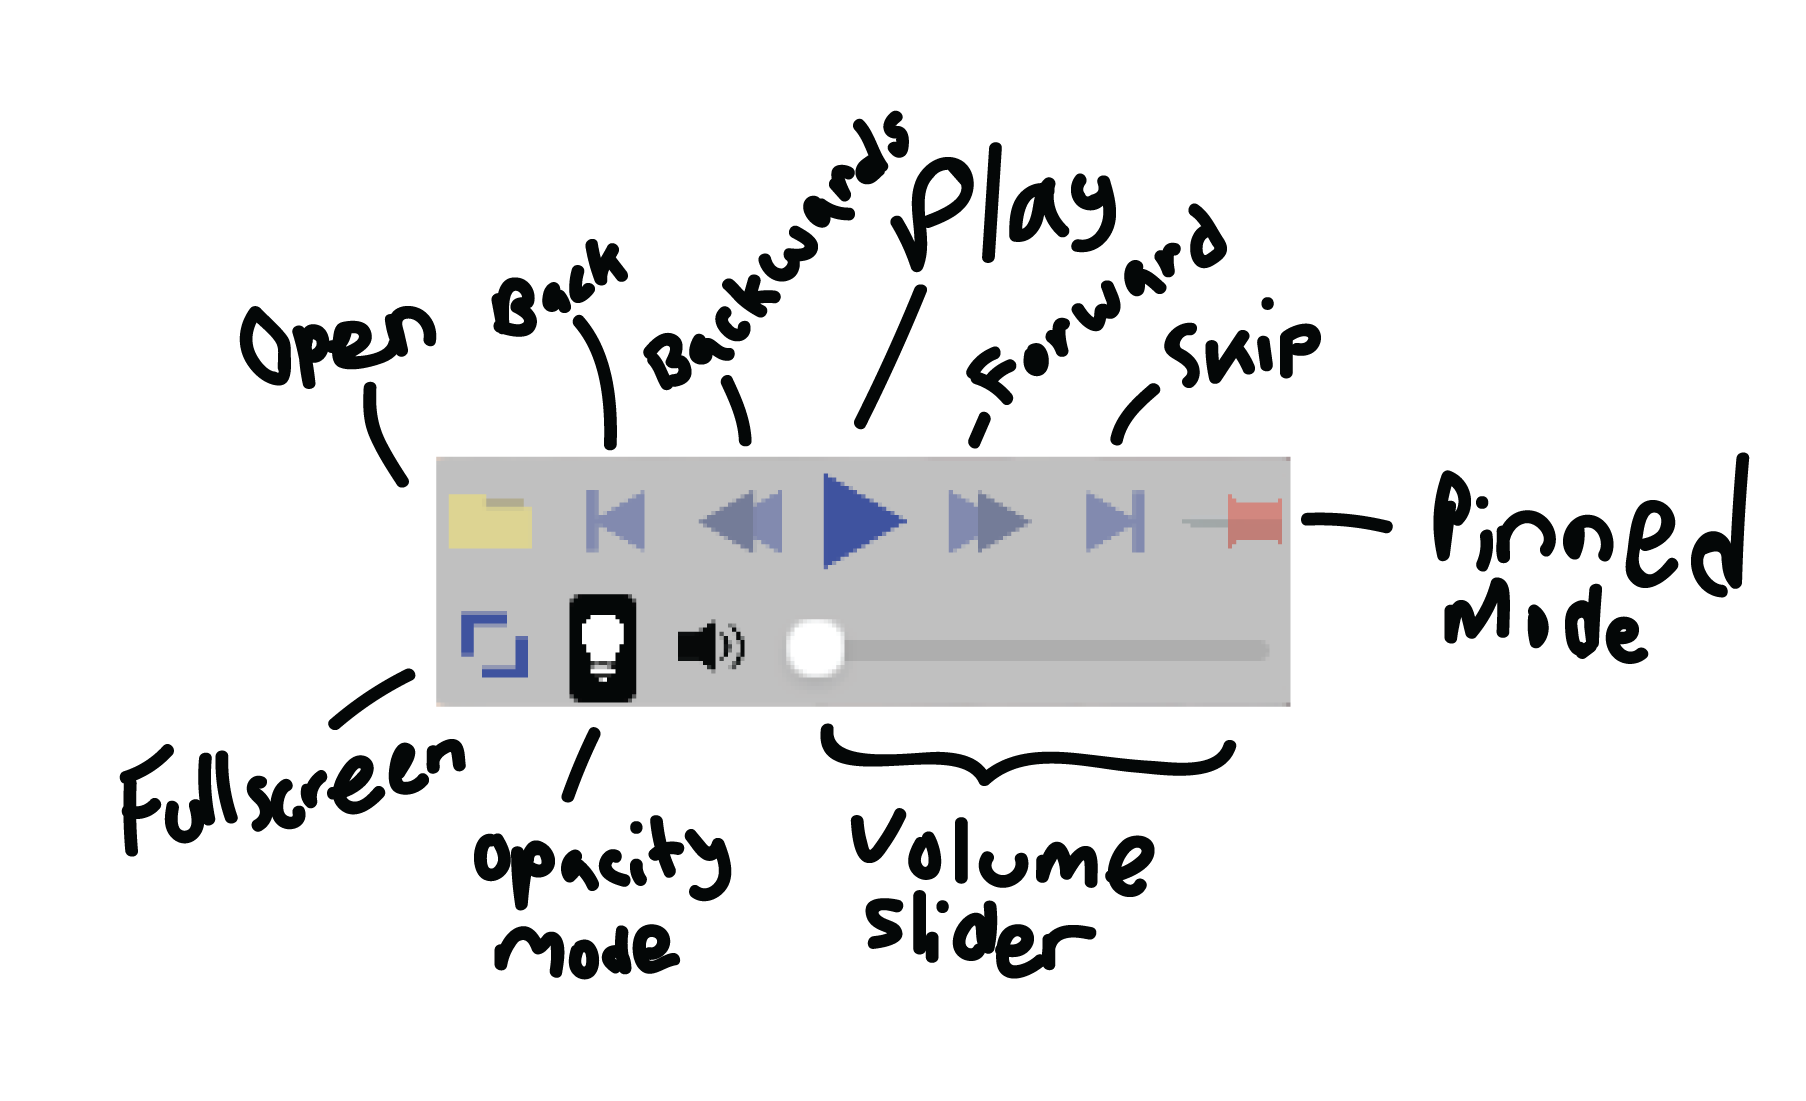 Open
Back
Backwards
Play
Forward
Skip
Pinned
Mode
Fullscreen
Opacity
Mode
Volume
Slider